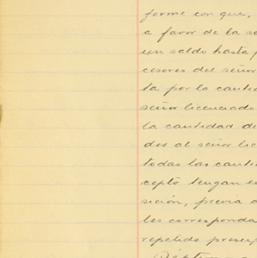 forme con que,
a favor de la s
un saldo hasta p
cesores del señor
ta por la canti
señor licenciado
la cantidad de
des al señor lic
todas las canti
cepto tengan en
sición, previa a
les corresponda
repetido presup